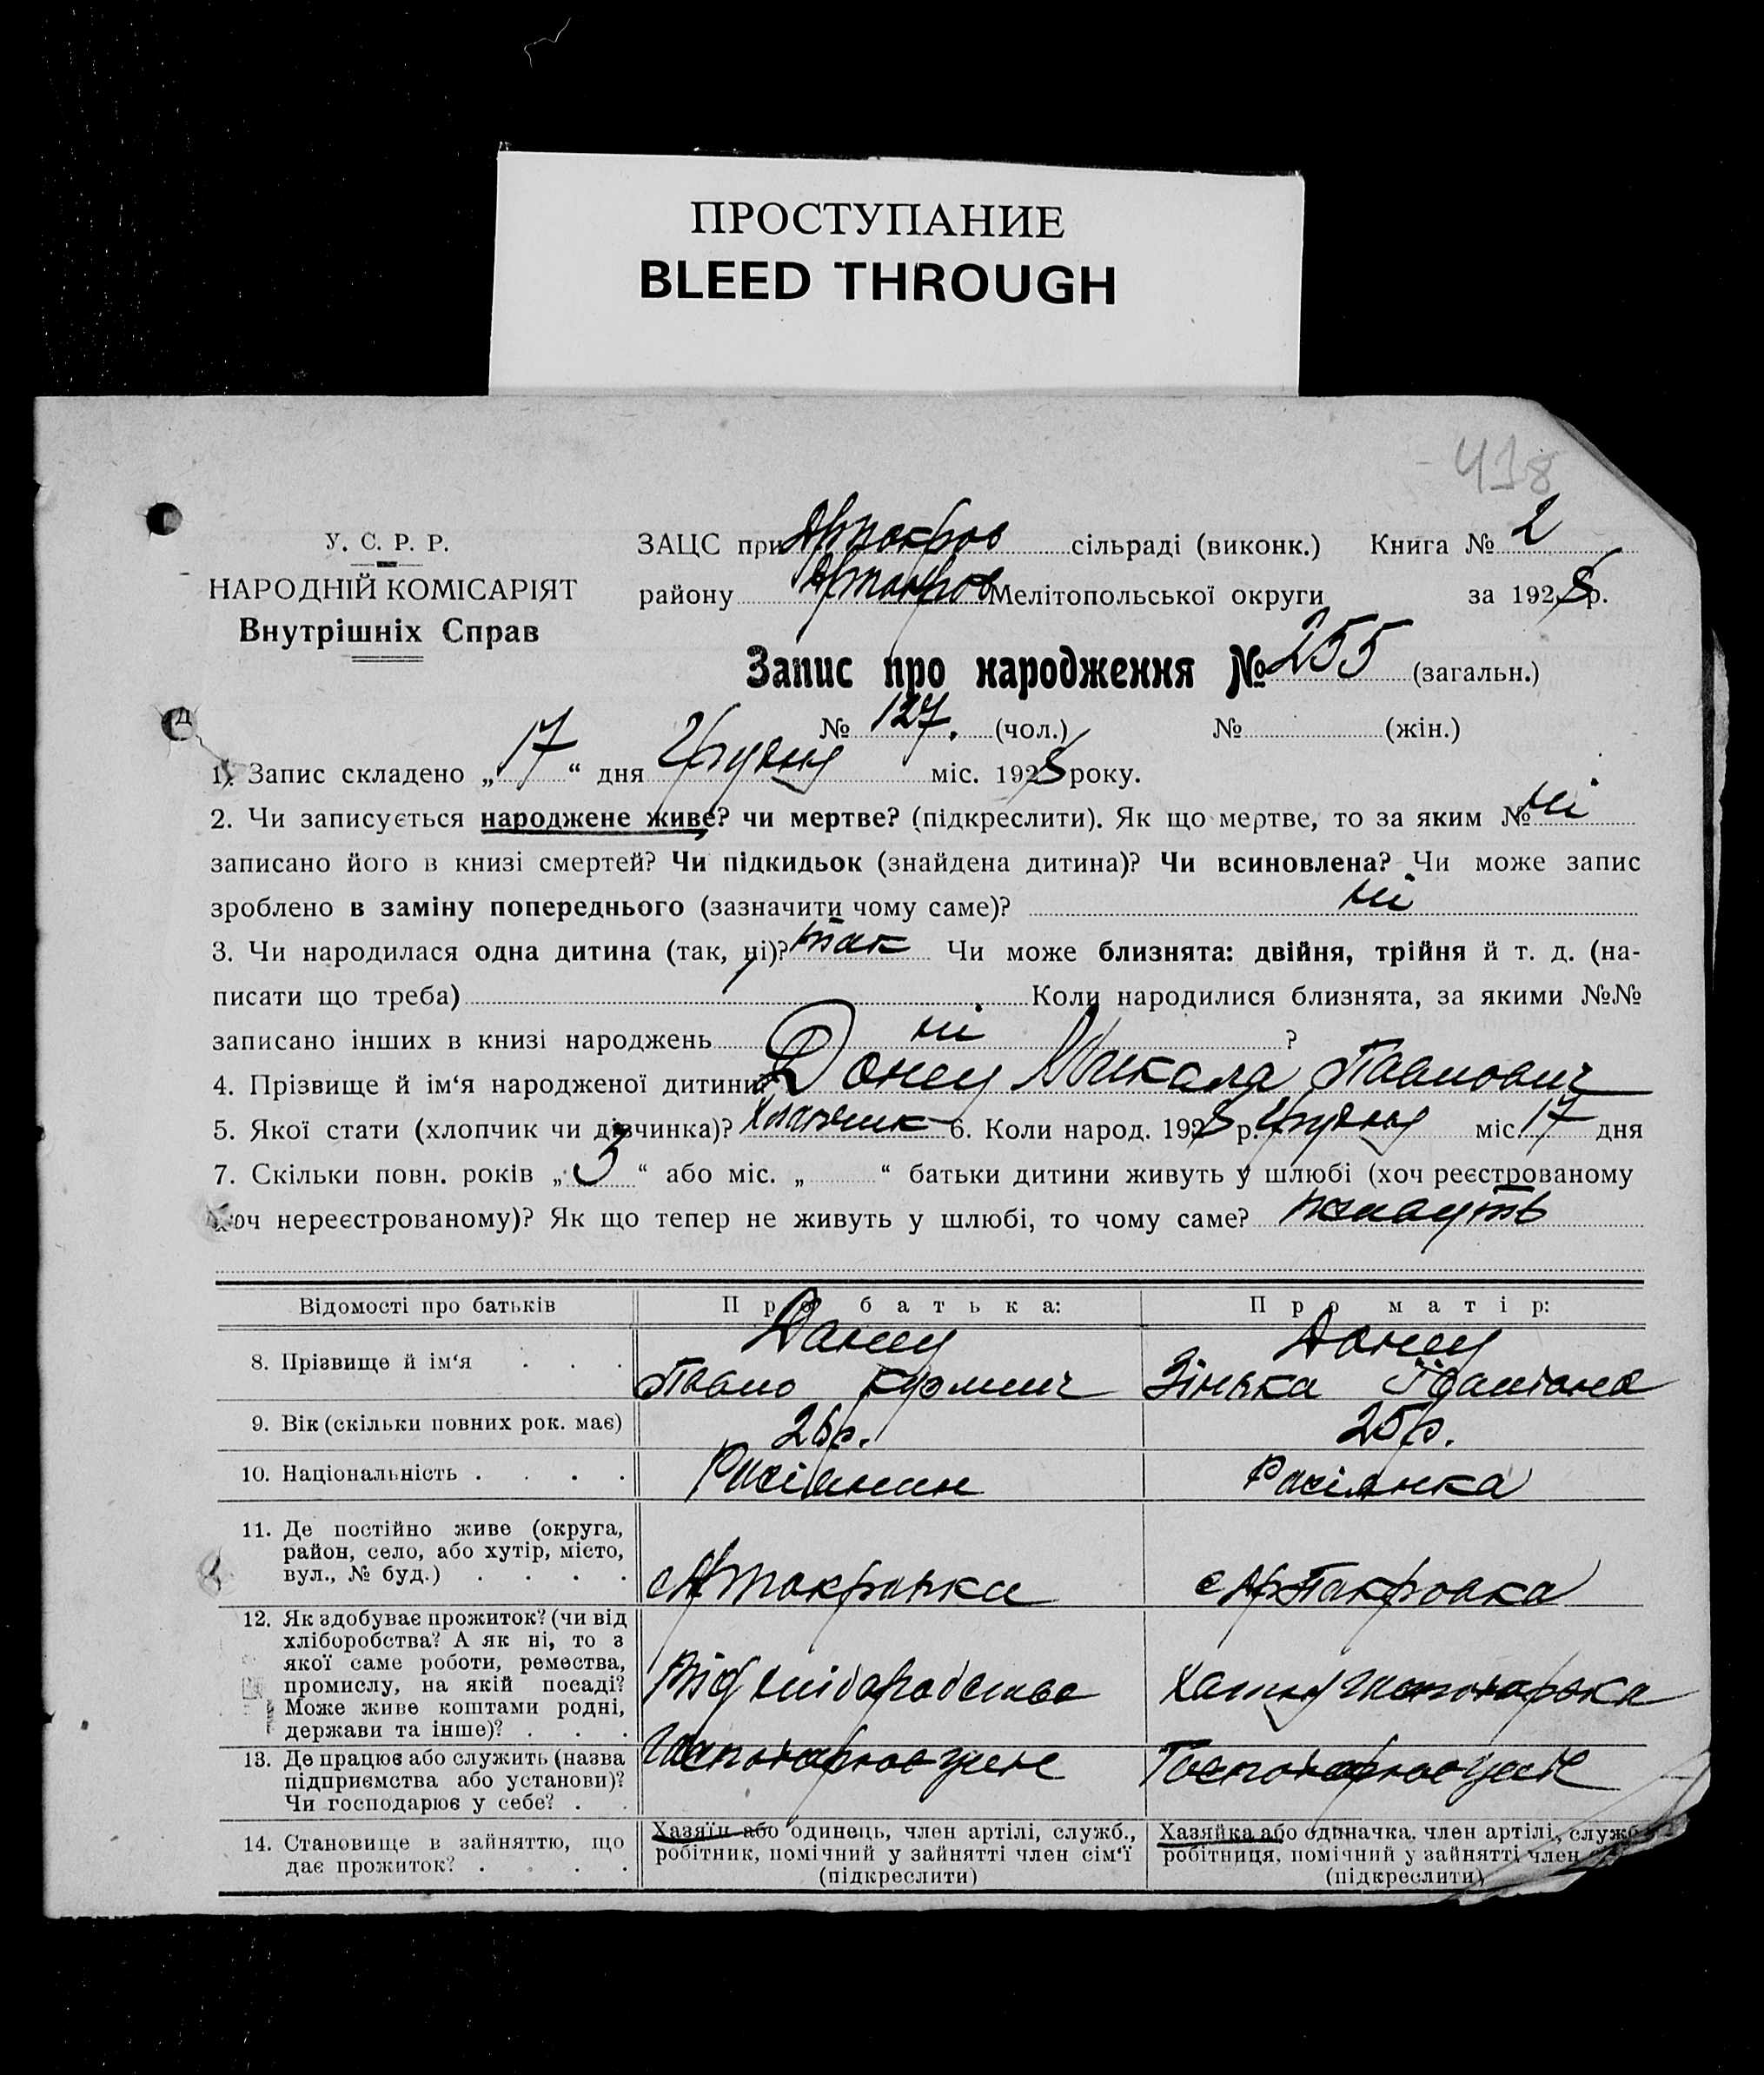 ПРОСТУПАНИЕ
BLEED THROUGH
418
У. С. Р. Р.
НАРОДНІЙ КОМІСАРІЯТ
Внутрішніх Справ
ЗАЦС при Артокров сільраді (виконк.) Книга № 2
району Мелітопольської округи за 1928 р.
Запис про народження № 255 (загальн.)
№ 127. (чол.) № (жін.)
1. Запис складено „17“ дня Грудня міс. 1928 року.
2. Чи записується народжене живе? чи мертве? (підкреслити). Як що мертве, то за яким № ні
записано його в книзі смертей? Чи підкидьок (знайдена дитина)? Чи всиновлена? Чи може запис
зроблено в заміну попереднього (зазначити чому саме)? ні
3. Чи народилася одна дитина (так, ні)? так Чи може близнята: двійня, трійня й т. д. (на-
писати що треба) Коли народилися близнята, за якими №№
записано інших в книзі народжень ні ?
4. Прізвище й ім‘я народженої дитини? Донец Микола Павлович
5. Якої стати (хлопчик чи дівчинка)? Хлопчик 6. Коли народ. 1928 р. Грудня міс. 17 дня
7. Скільки повн. років „3“ або міс. „ “ батьки дитини живуть у шлюбі (хоч реєстрованому
хоч нереєстрованому)? Як що тепер не живуть у шлюбі, то чому саме? живуть
Відомості про батьків Про батька: Про матір:
8. Прізвище й ім‘я . . . Донец Донец
Павло Кузмич Зінька
9. Вік (скільки повних рок. має) 26 р. 25 р.
10. Національність . . . . Росіянин Росіянка
11. Де постійно живе (округа,
район, село, або хутір, місто,
вул., № буд.) . . . .
12. Як здобуває прожиток? (чи від
хліборобства? А як ні, то з
якої саме роботи, ремества,
промислу, на якій посаді?
Може живе коштами родні,
держави та інше)? . . .
Від хліборобства Хатня господарка
13. Де працює або служить (назва
підприємства або установи)?
Чи господарює у себе? . .
14. Становище в зайняттю, що
дає прожиток? . . . .
Хазяїн або одинець, член артілі, служб.,
робітник, помічний у зайнятті член сім‘ї
(підкреслити)
Хазяйка або одиначка, член артілі, служб
робітниця, помічний у зайнятті член
(підкреслити)